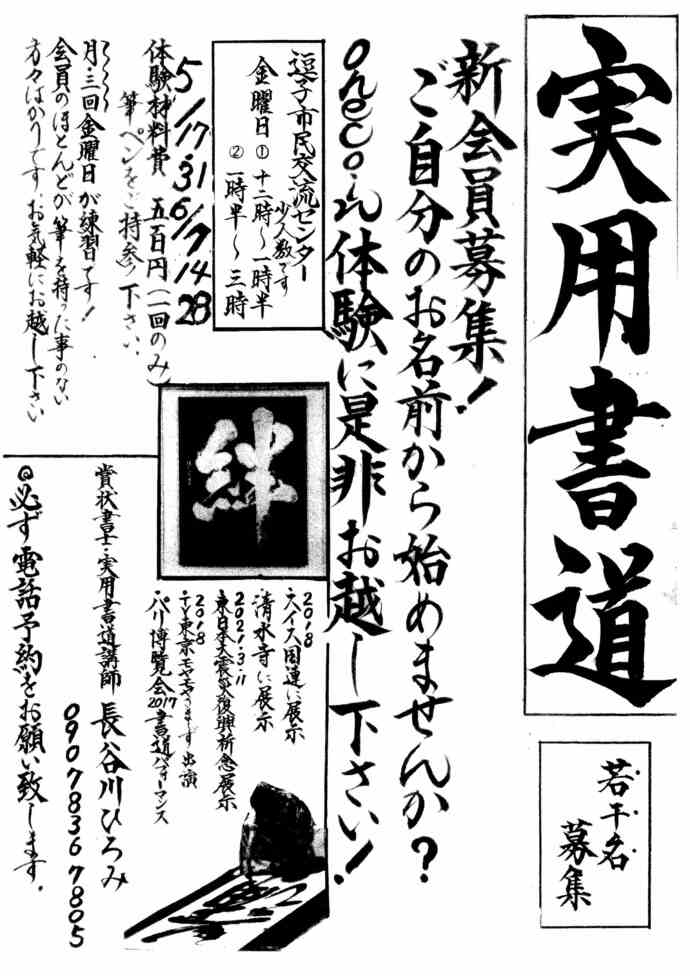 実用書道
若干名
募集
新会員募集!
ご自分のお名前から始めませんか?
onecoin体験に是非お越し下さい!
逗子市民交流センター
少人数です
金曜日 ① 十二時〜一時半
② 一時半〜三時
5/17.31 6/7 14 28
体験材料費 五百円(一回のみ)
筆ペンをご持参下さい
月・三回金曜日が練習です!
会員のほとんどが筆を持った事のない
方々ばかりです.お気軽にお越し下さい
絆
2018
スイス国連に展示
清水寺に展示
2021.3.11
東日本大震災復興祈念展示
2018
TV東京モヤモヤさまぁず出演
パリ博覧会2017書道パフォーマンス
賞状書士・実用書道講師 長谷川ひろみ
09078367805
◎必ず電話予約をお願い致します.